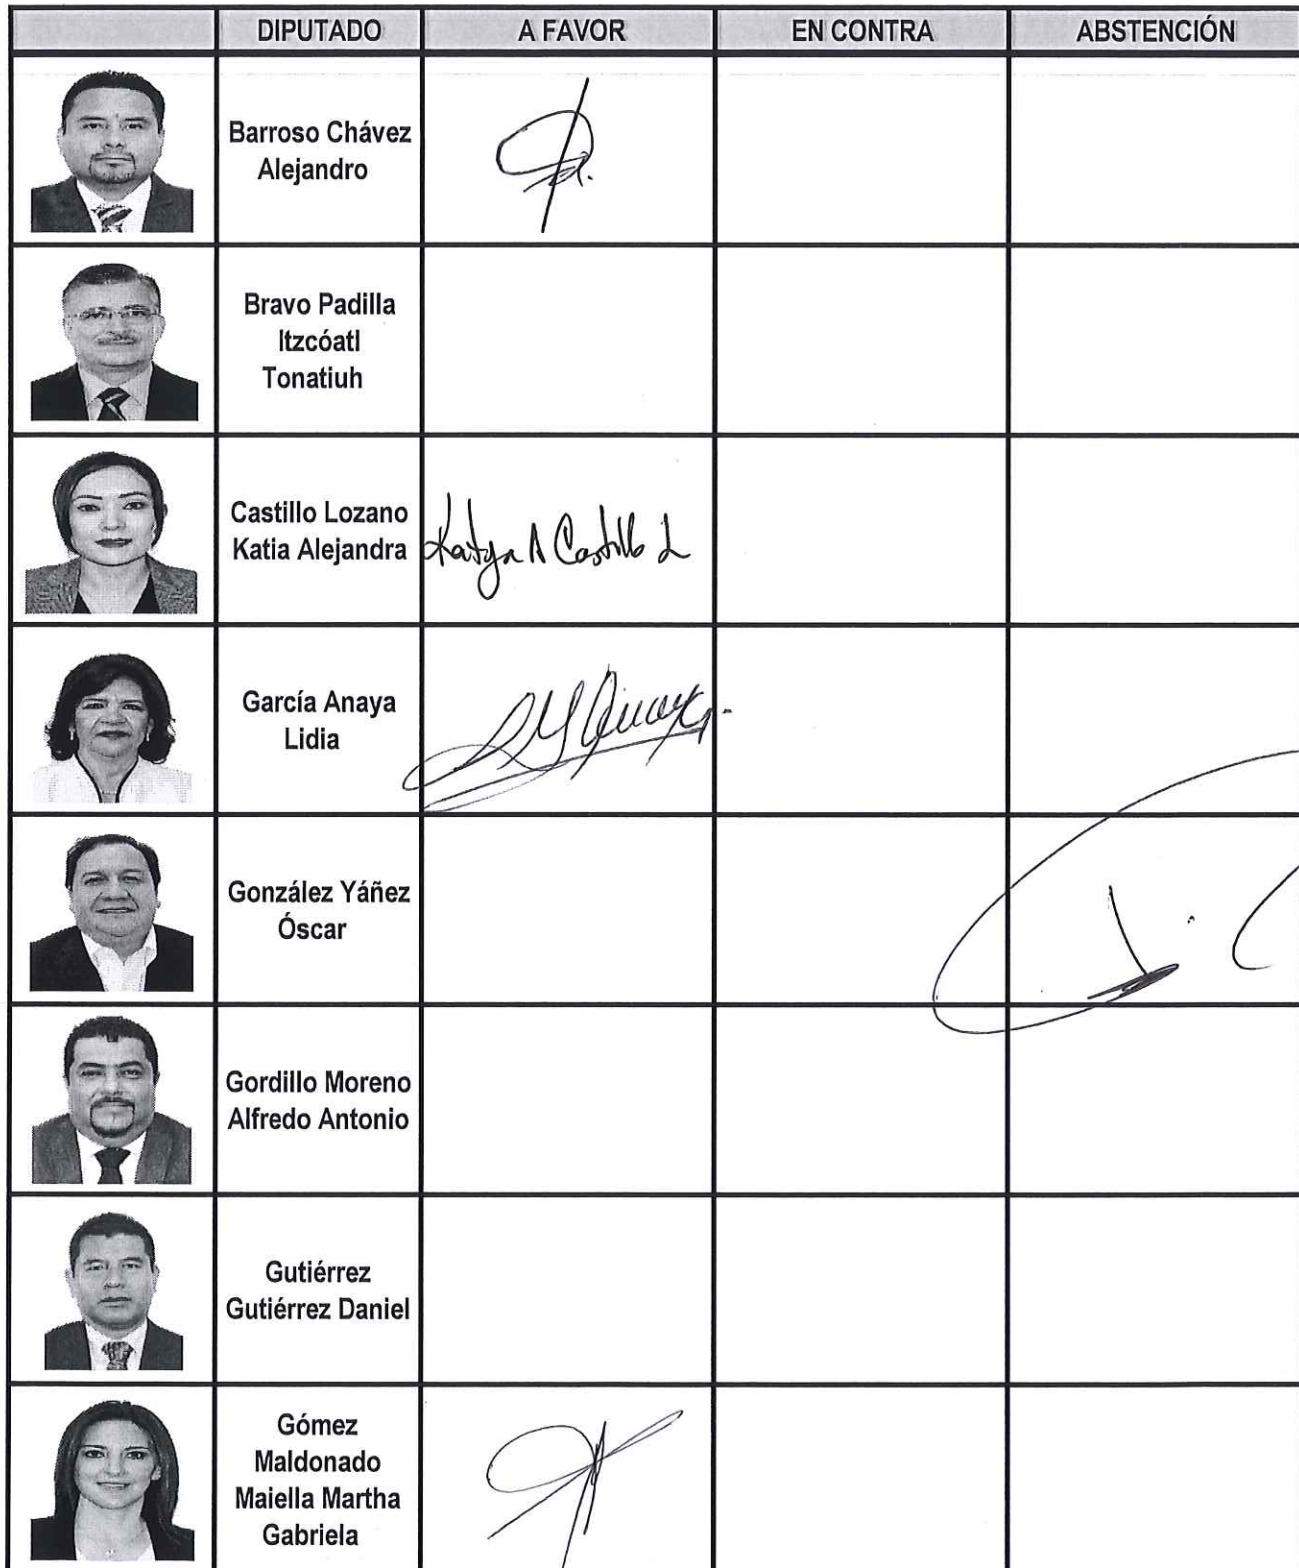 DIPUTADO A FAVOR EN CONTRA ABSTENCIÓN
Barroso Chávez
Alejandro
Bravo Padilla
Itzcóatl
Tonatiuh
Castillo Lozano
Katia Alejandra
Katya A Castillo L
García Anaya
Lidia
González Yáñez
Óscar
Gordillo Moreno
Alfredo Antonio
Gutiérrez
Gutiérrez Daniel
Gómez
Maldonado
Maiella Martha
Gabriela